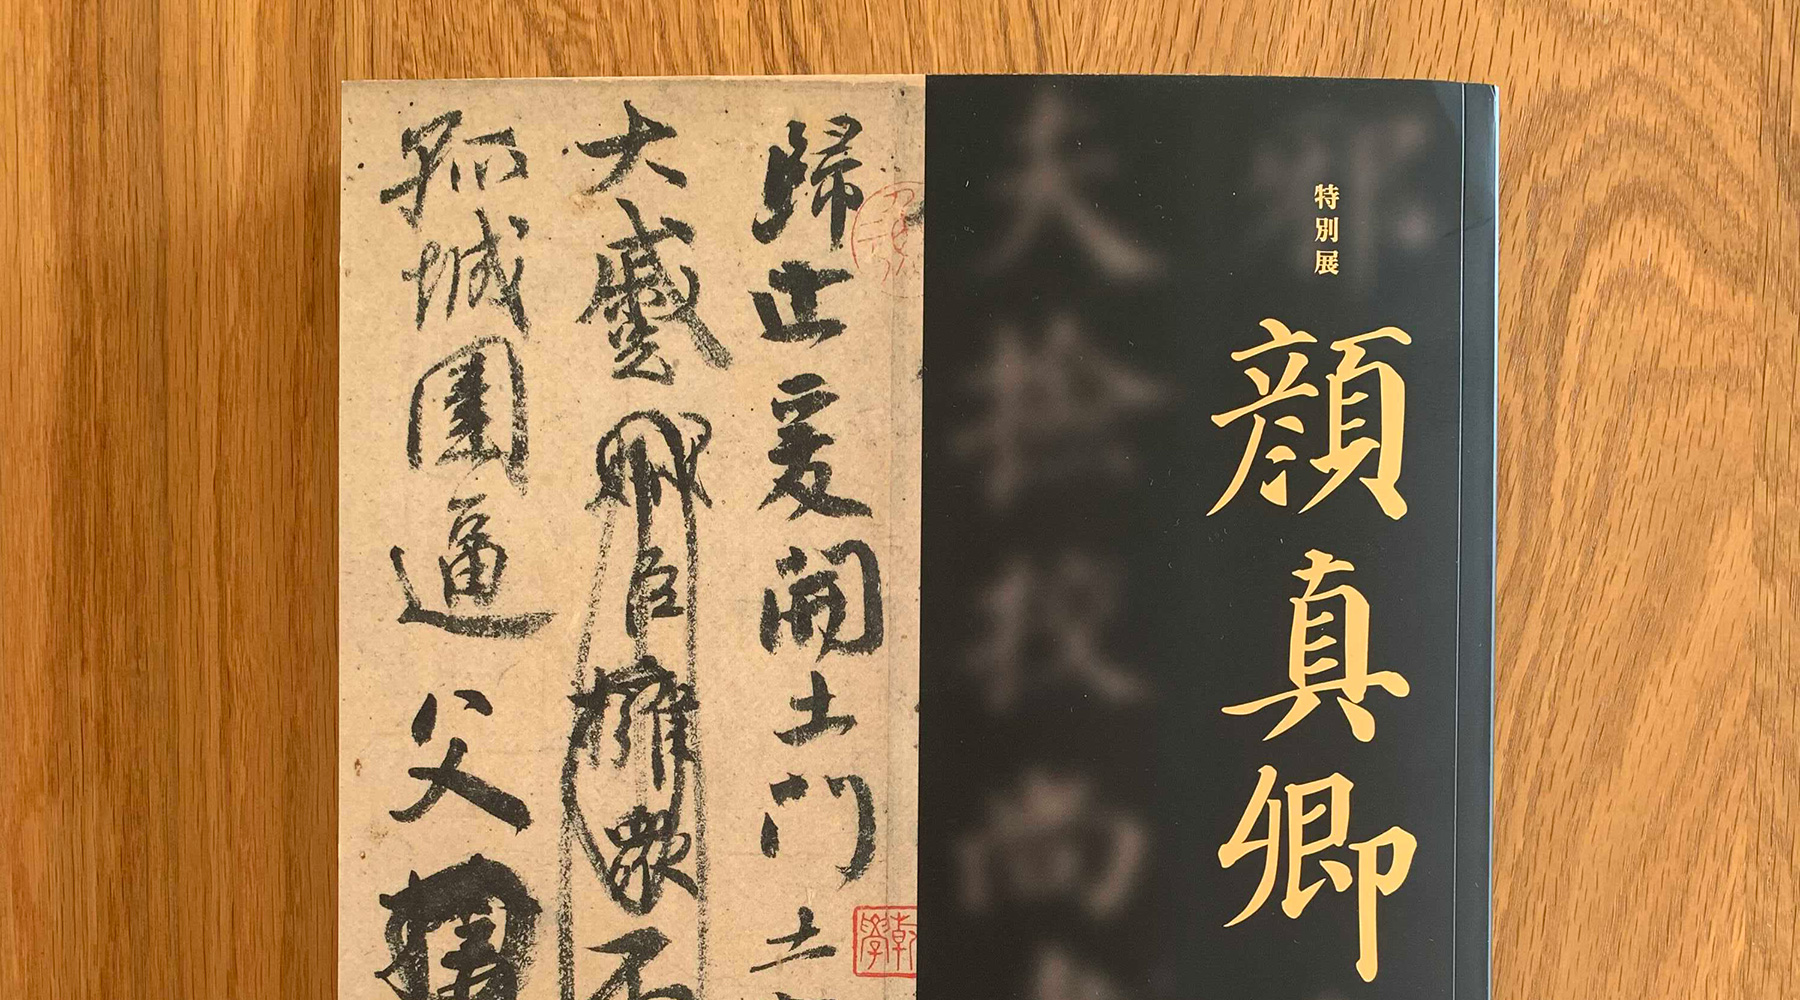 特別展
顔真卿
歸止爰開土門土
大蹙賊臣擁衆不
孤城圍逼父
乾學